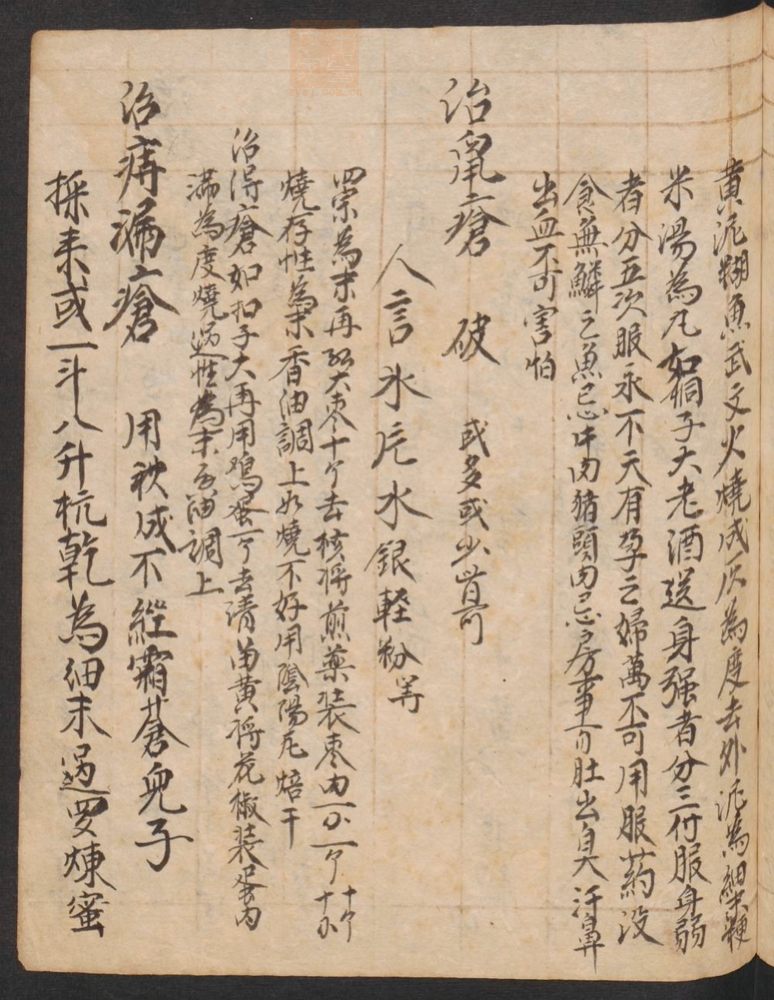 黄泥糊魚武文火燒成灰為度去外泥為細粳
米湯為凡如桐子大老酒送身强者分三付服身弱
者分五次服永不犬有孕之婦萬不可用服葯没
食無鱗之魚忌牛肉猪頭肉忌房事百日肚出臭汗鼻
出血不可害怕
治鼠瘡 破 或多或少皆可
人言氷片水銀軽粉等
四宗為末再 大枣十个去核将煎藥装枣内一分一个 十个 十分
燒存性為末香油調上如燒不好用陰陽瓦焙干
治得瘡如扣子大再用鸡蛋一个去清留黄将花椒装蛋内
满為度燒過性為末香油調上
治痔漏瘡 用秋成不經霜蒼兒子
採来或一斗八升杭乾為細末過罗煉蜜